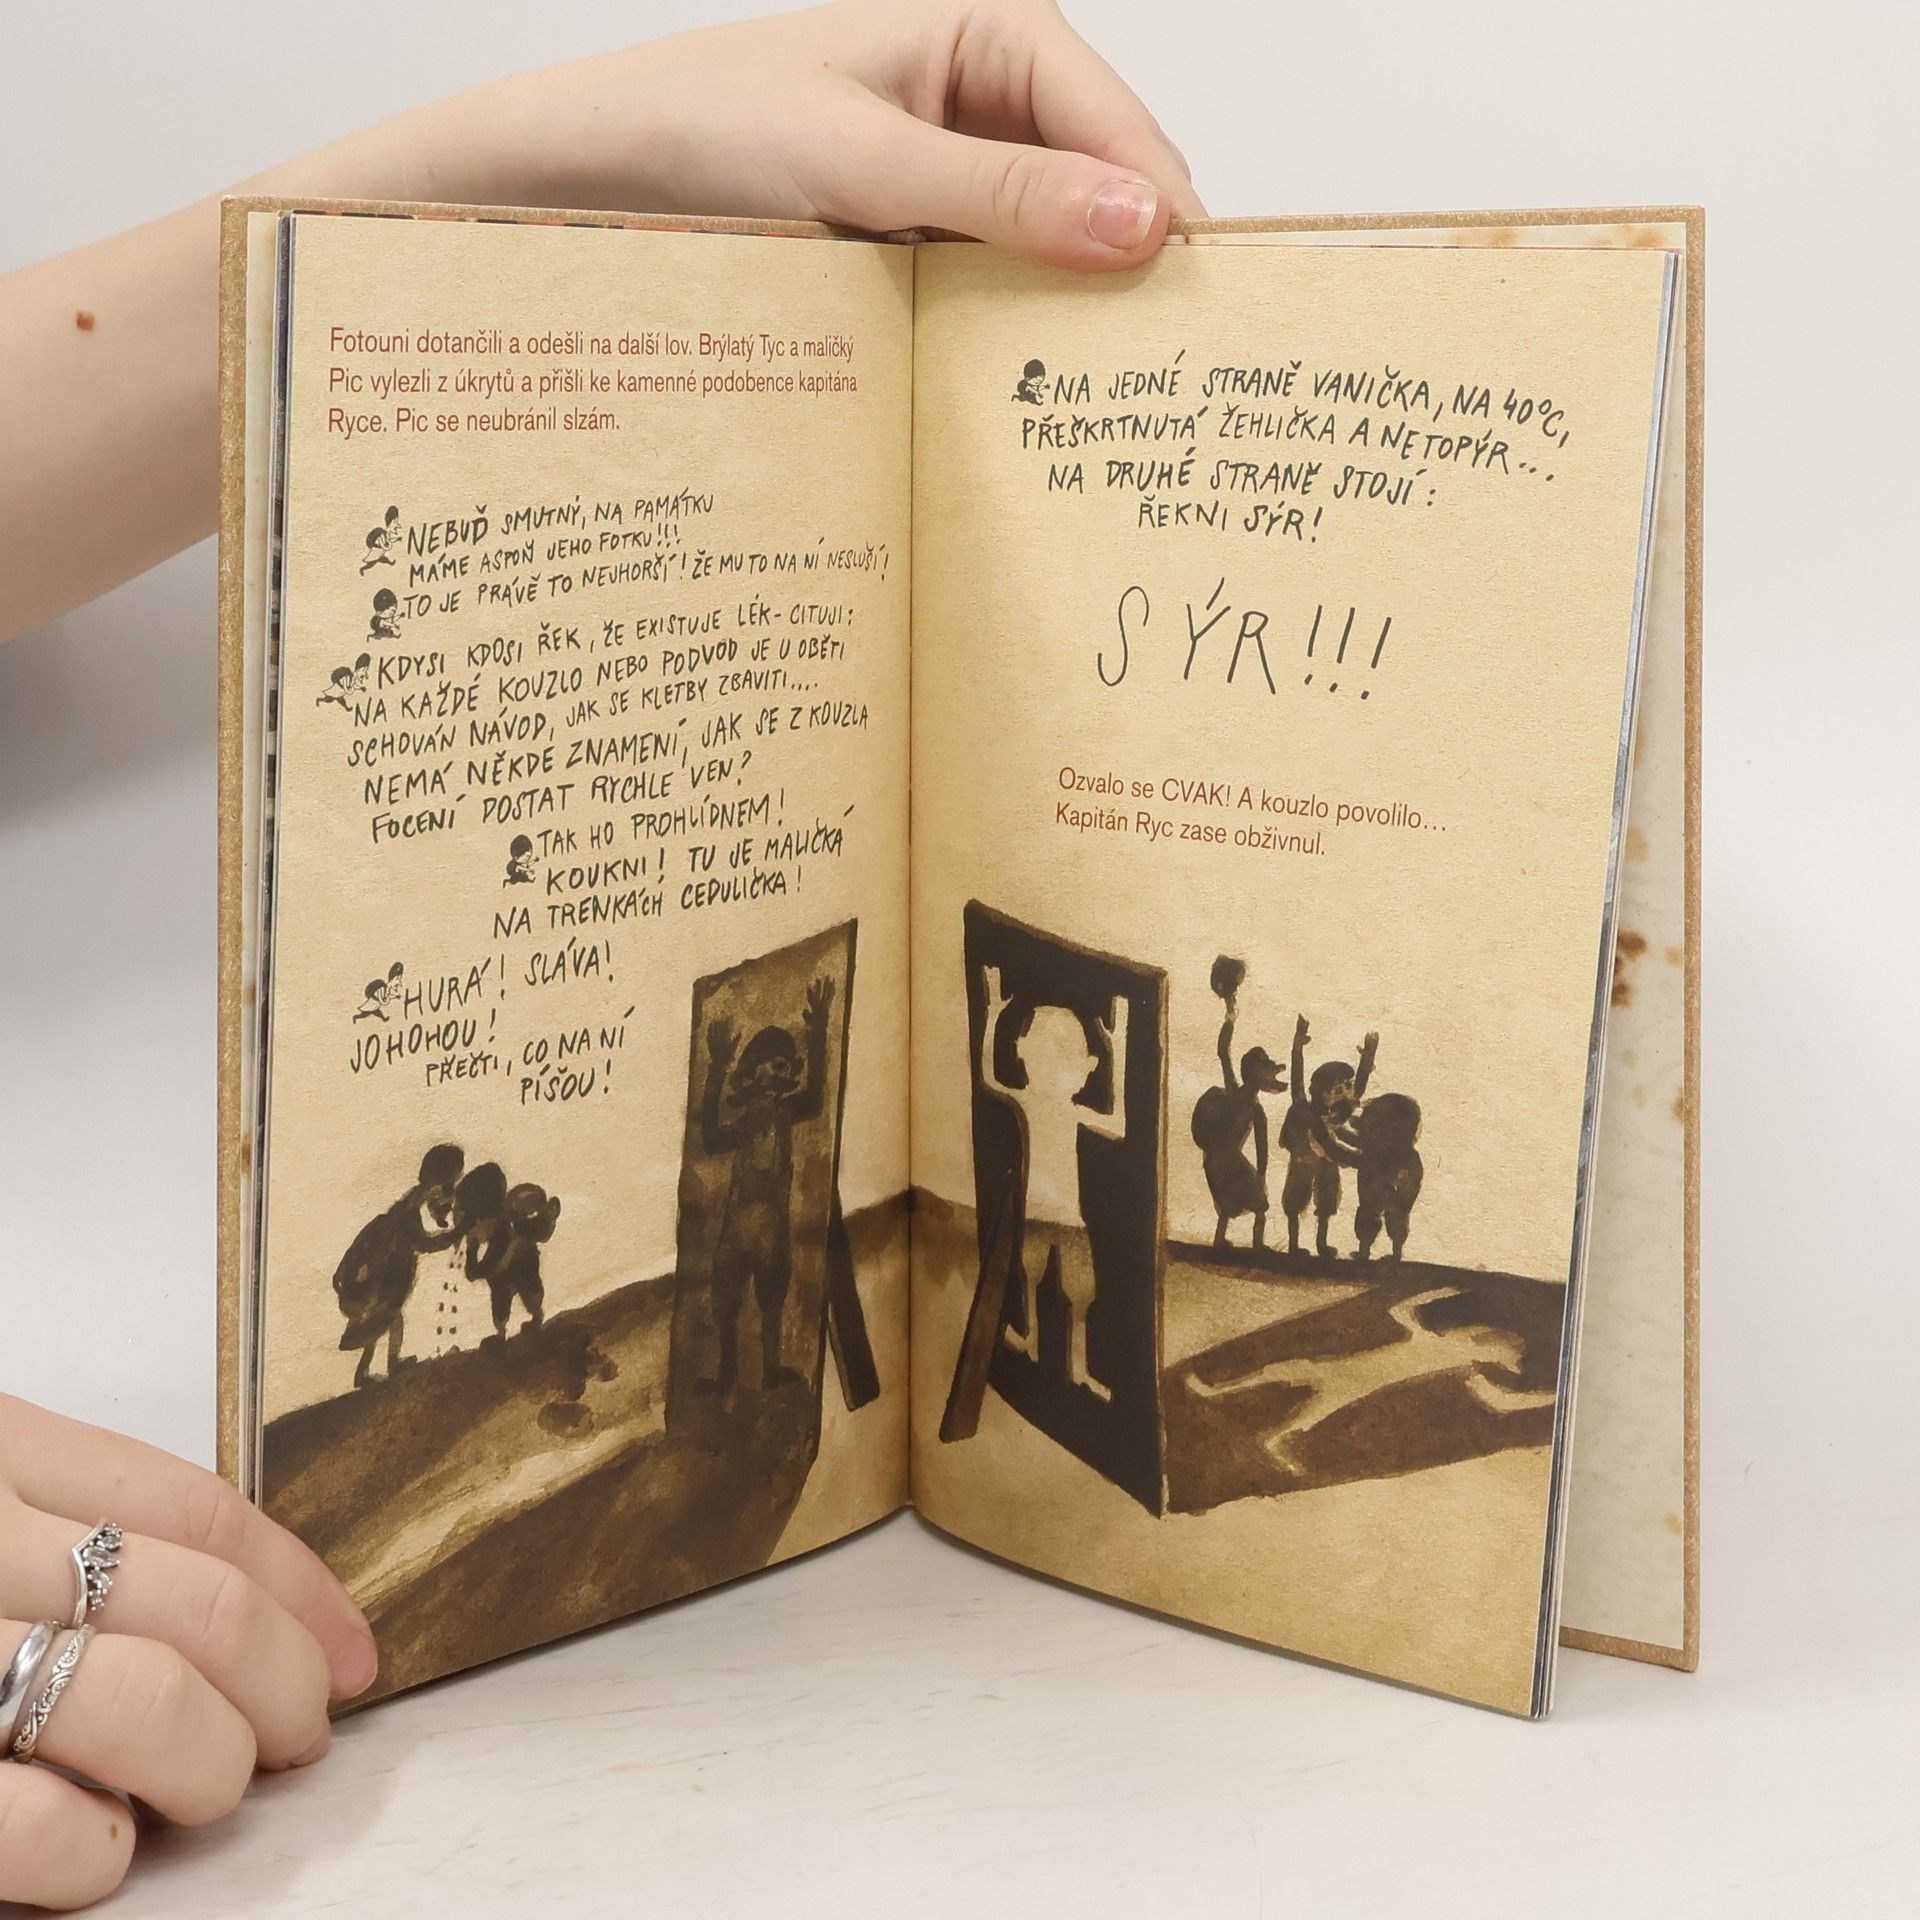 Fotouni dotančili a odešli na další lov. Brýlatý Tyc a maličký
Pic vylezli z úkrytů a přišli ke kamenné podobence kapitána
Ryce. Pic se neubránil slzám.
NEBUĎ SMUTNÝ, NA PAMÁTKU
MÁME ASPOŇ JEHO FOTKU!!!
TO JE PRÁVĚ TO NEJHORŠÍ! ŽE MU TO NA NÍ NESLUŠÍ!
KDYSI KDOSI ŘEK, ŽE EXISTUJE LÉK - CITUJI:
NA KAŽDÉ KOUZLO NEBO PODVOD JE U OBĚTI
SCHOVÁN NÁVOD, JAK SE KLETBY ZBAVITI....
NEMÁ NĚKDE ZNAMENÍ, JAK SE Z KOUZLA
FOCENÍ DOSTAT RYCHLE VEN?
TAK HO PROHLÍDNEM!
KOUKNI! TU JE MALIČKÁ
NA TRENKÁCH CEDULIČKA!
HURÁ! SLÁVA!
JOHOHOU!
PŘEČTI, CO NA NÍ
PÍŠOU!
NA JEDNÉ STRANĚ VANIČKA, NA 40°C,
PŘEŠKRTNUTÁ ŽEHLIČKA A NETOPÝR...
NA DRUHÉ STRANĚ STOJÍ:
ŘEKNI SÝR!
SÝR!!!
Ozvalo se CVAK! A kouzlo povolilo...
Kapitán Ryc zase obživnul.